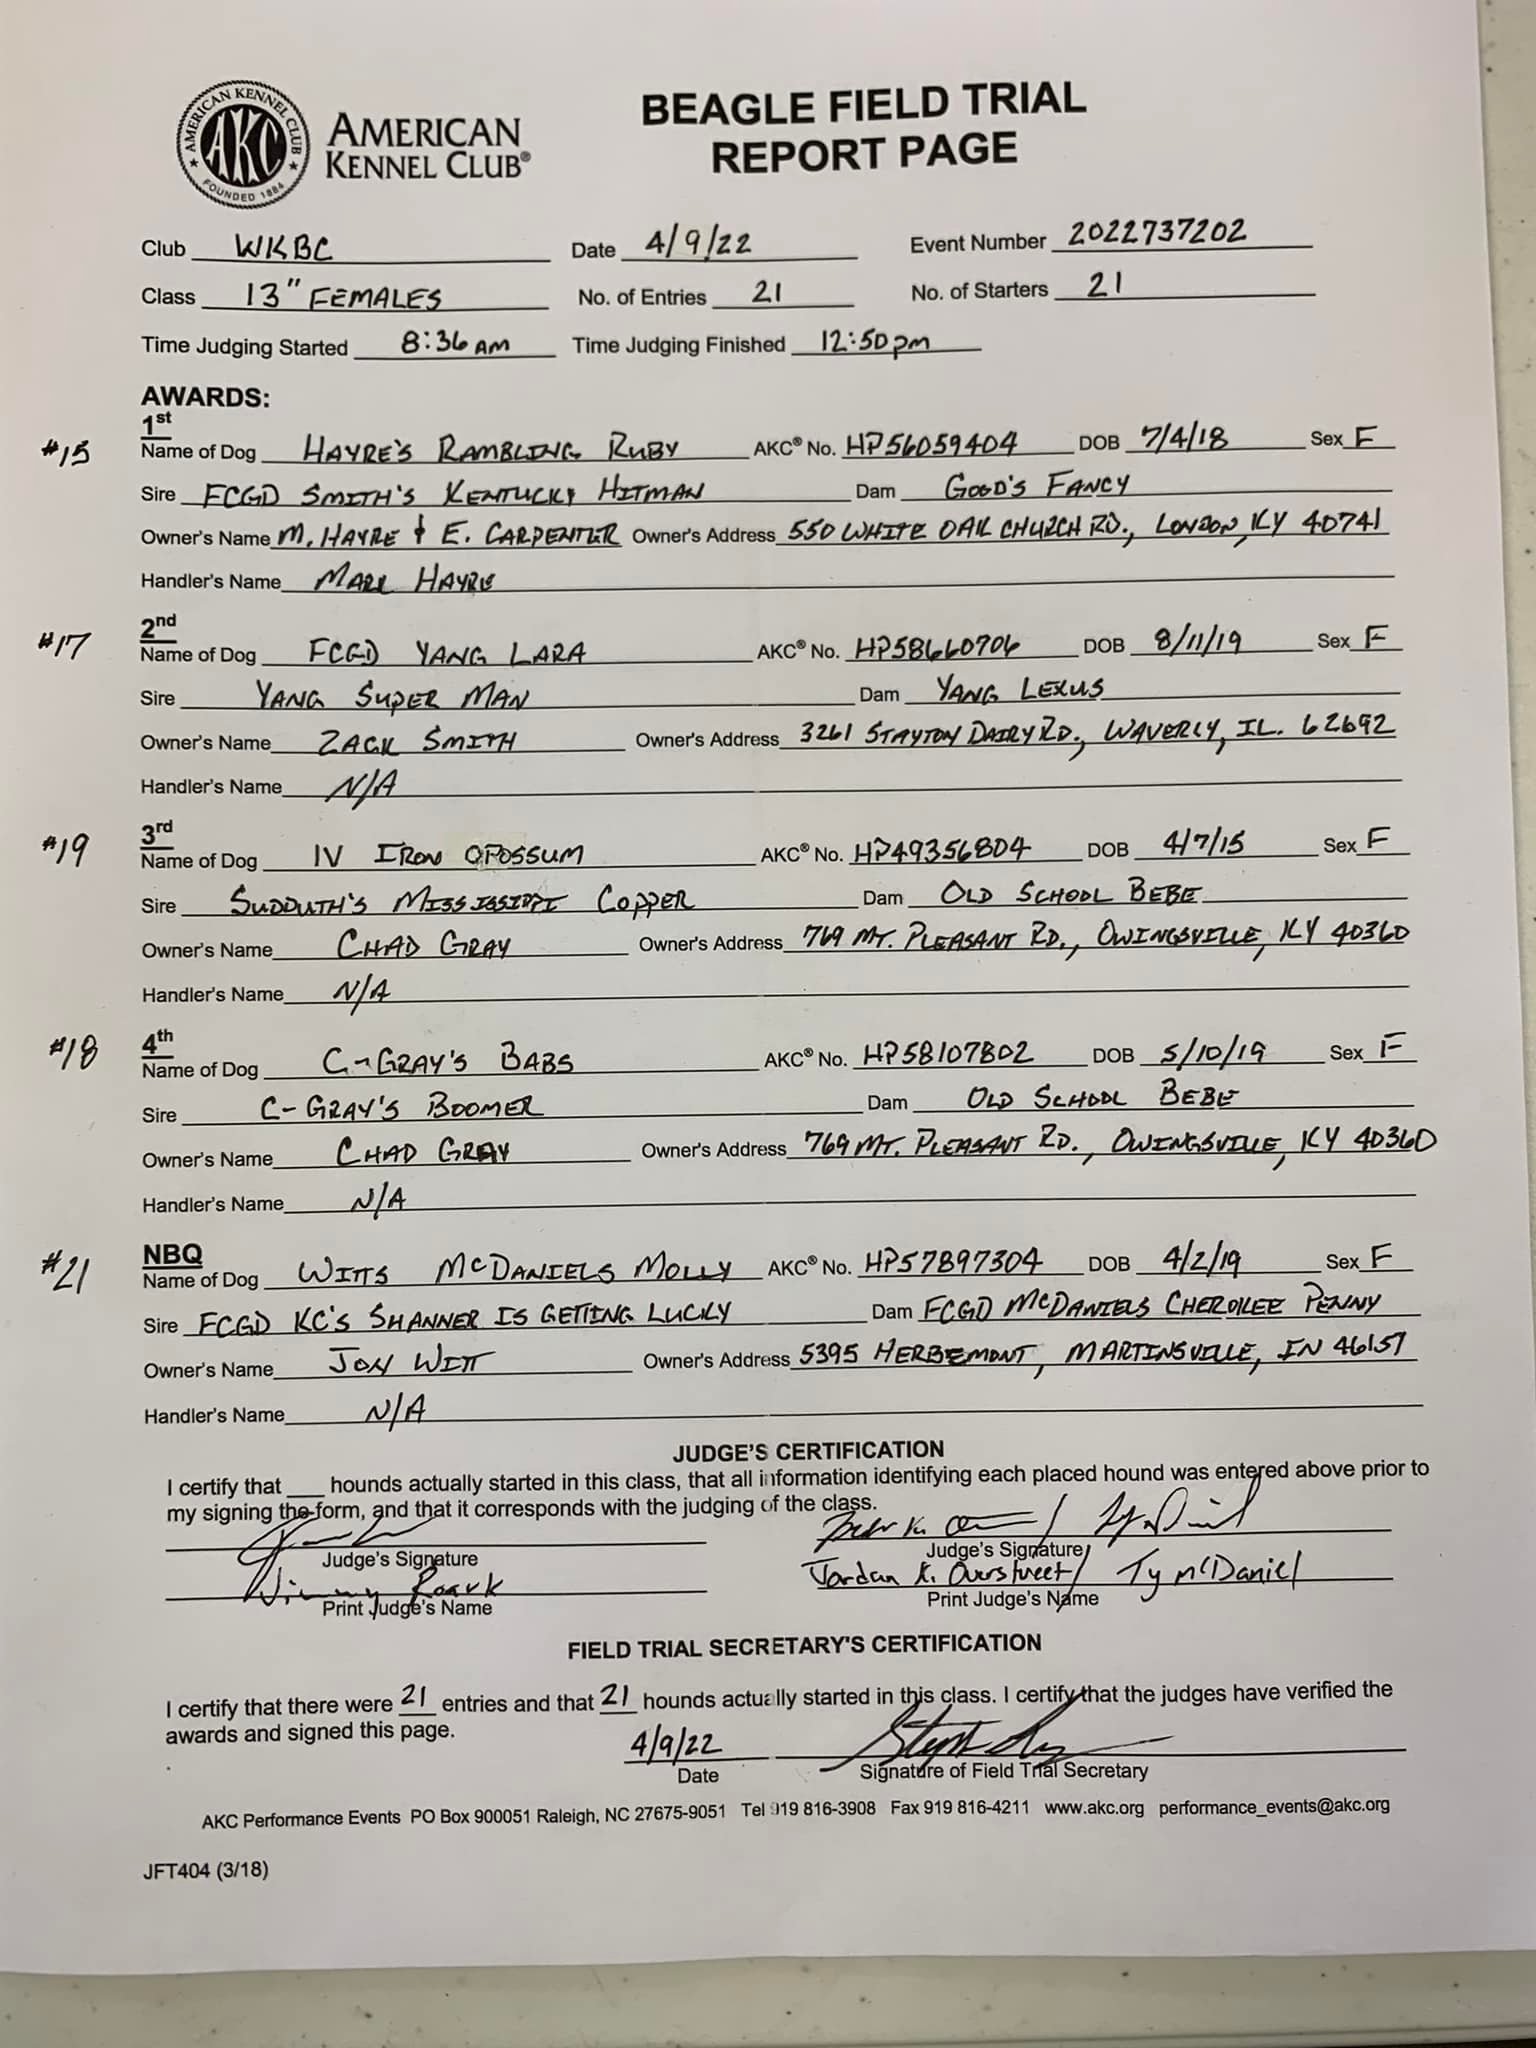 AMERICAN KENNEL CLUB
AKC
FOUNDED 1884
AMERICAN
KENNEL CLUB®
BEAGLE FIELD TRIAL
REPORT PAGE
Club WKBC Date 4/9/22 Event Number 2022737202
Class 13" FEMALES No. of Entries 21 No. of Starters 21
Time Judging Started 8:36 AM Time Judging Finished 12:50 pm
AWARDS:
1st
#15 Name of Dog HAYRE'S RAMBLING RUBY AKC® No. HP56059404 DOB 7/4/18 Sex F
Sire FCGD SMITH'S KENTUCKY HITMAN Dam GOOD'S FANCY
Owner's Name M. HAYRE & E. CARPENTER Owner's Address 550 WHITE OAK CHURCH RD., LONDON, KY 40741
Handler's Name MARK HAYRE
2nd
#17 Name of Dog FCGD YANG LARA AKC® No. HP58660706 DOB 8/11/19 Sex F
Sire YANG SUPER MAN Dam YANG LEXUS
Owner's Name ZACK SMITH Owner's Address 3261 STAYTON DAIRY RD., WAVERLY, IL. 62692
Handler's Name N/A
3rd
#19 Name of Dog IV IRON OPOSSUM AKC® No. HP49356804 DOB 4/7/15 Sex F
Sire SUDDUTH'S MISSISSIPPI COPPER Dam OLD SCHOOL BEBE
Owner's Name CHAD GRAY Owner's Address 769 MT. PLEASANT RD., OWINGSVILLE, KY 40360
Handler's Name N/A
4th
#18 Name of Dog C-GRAY'S BABS AKC® No. HP58107802 DOB 5/10/19 Sex F
Sire C-GRAY'S BOOMER Dam OLD SCHOOL BEBE
Owner's Name CHAD GRAY Owner's Address 769 MT. PLEASANT RD., OWINGSVILLE, KY 40360
Handler's Name N/A
NBQ
#21 Name of Dog WITTS McDANIELS MOLLY AKC® No. HP57897304 DOB 4/2/19 Sex F
Sire FCGD KC'S SHANNER IS GETTING LUCKY Dam FCGD McDANIELS CHEROKEE PENNY
Owner's Name JON WITT Owner's Address 5395 HERBEMONT, MARTINSVILLE, IN 46151
Handler's Name N/A
JUDGE'S CERTIFICATION
I certify that ___ hounds actually started in this class, that all information identifying each placed hound was entered above prior to
my signing the form, and that it corresponds with the judging of the class.
Judge's Signature Judge's Signature
Jimmy Roark Jordan K. Overstreet / Ty McDaniel
Print Judge's Name Print Judge's Name
FIELD TRIAL SECRETARY'S CERTIFICATION
I certify that there were 21 entries and that 21 hounds actually started in this class. I certify that the judges have verified the
awards and signed this page.
4/9/22
Date Signature of Field Trial Secretary
AKC Performance Events PO Box 900051 Raleigh, NC 27675-9051 Tel 919 816-3908 Fax 919 816-4211 www.akc.org performance_events@akc.org
JFT404 (3/18)